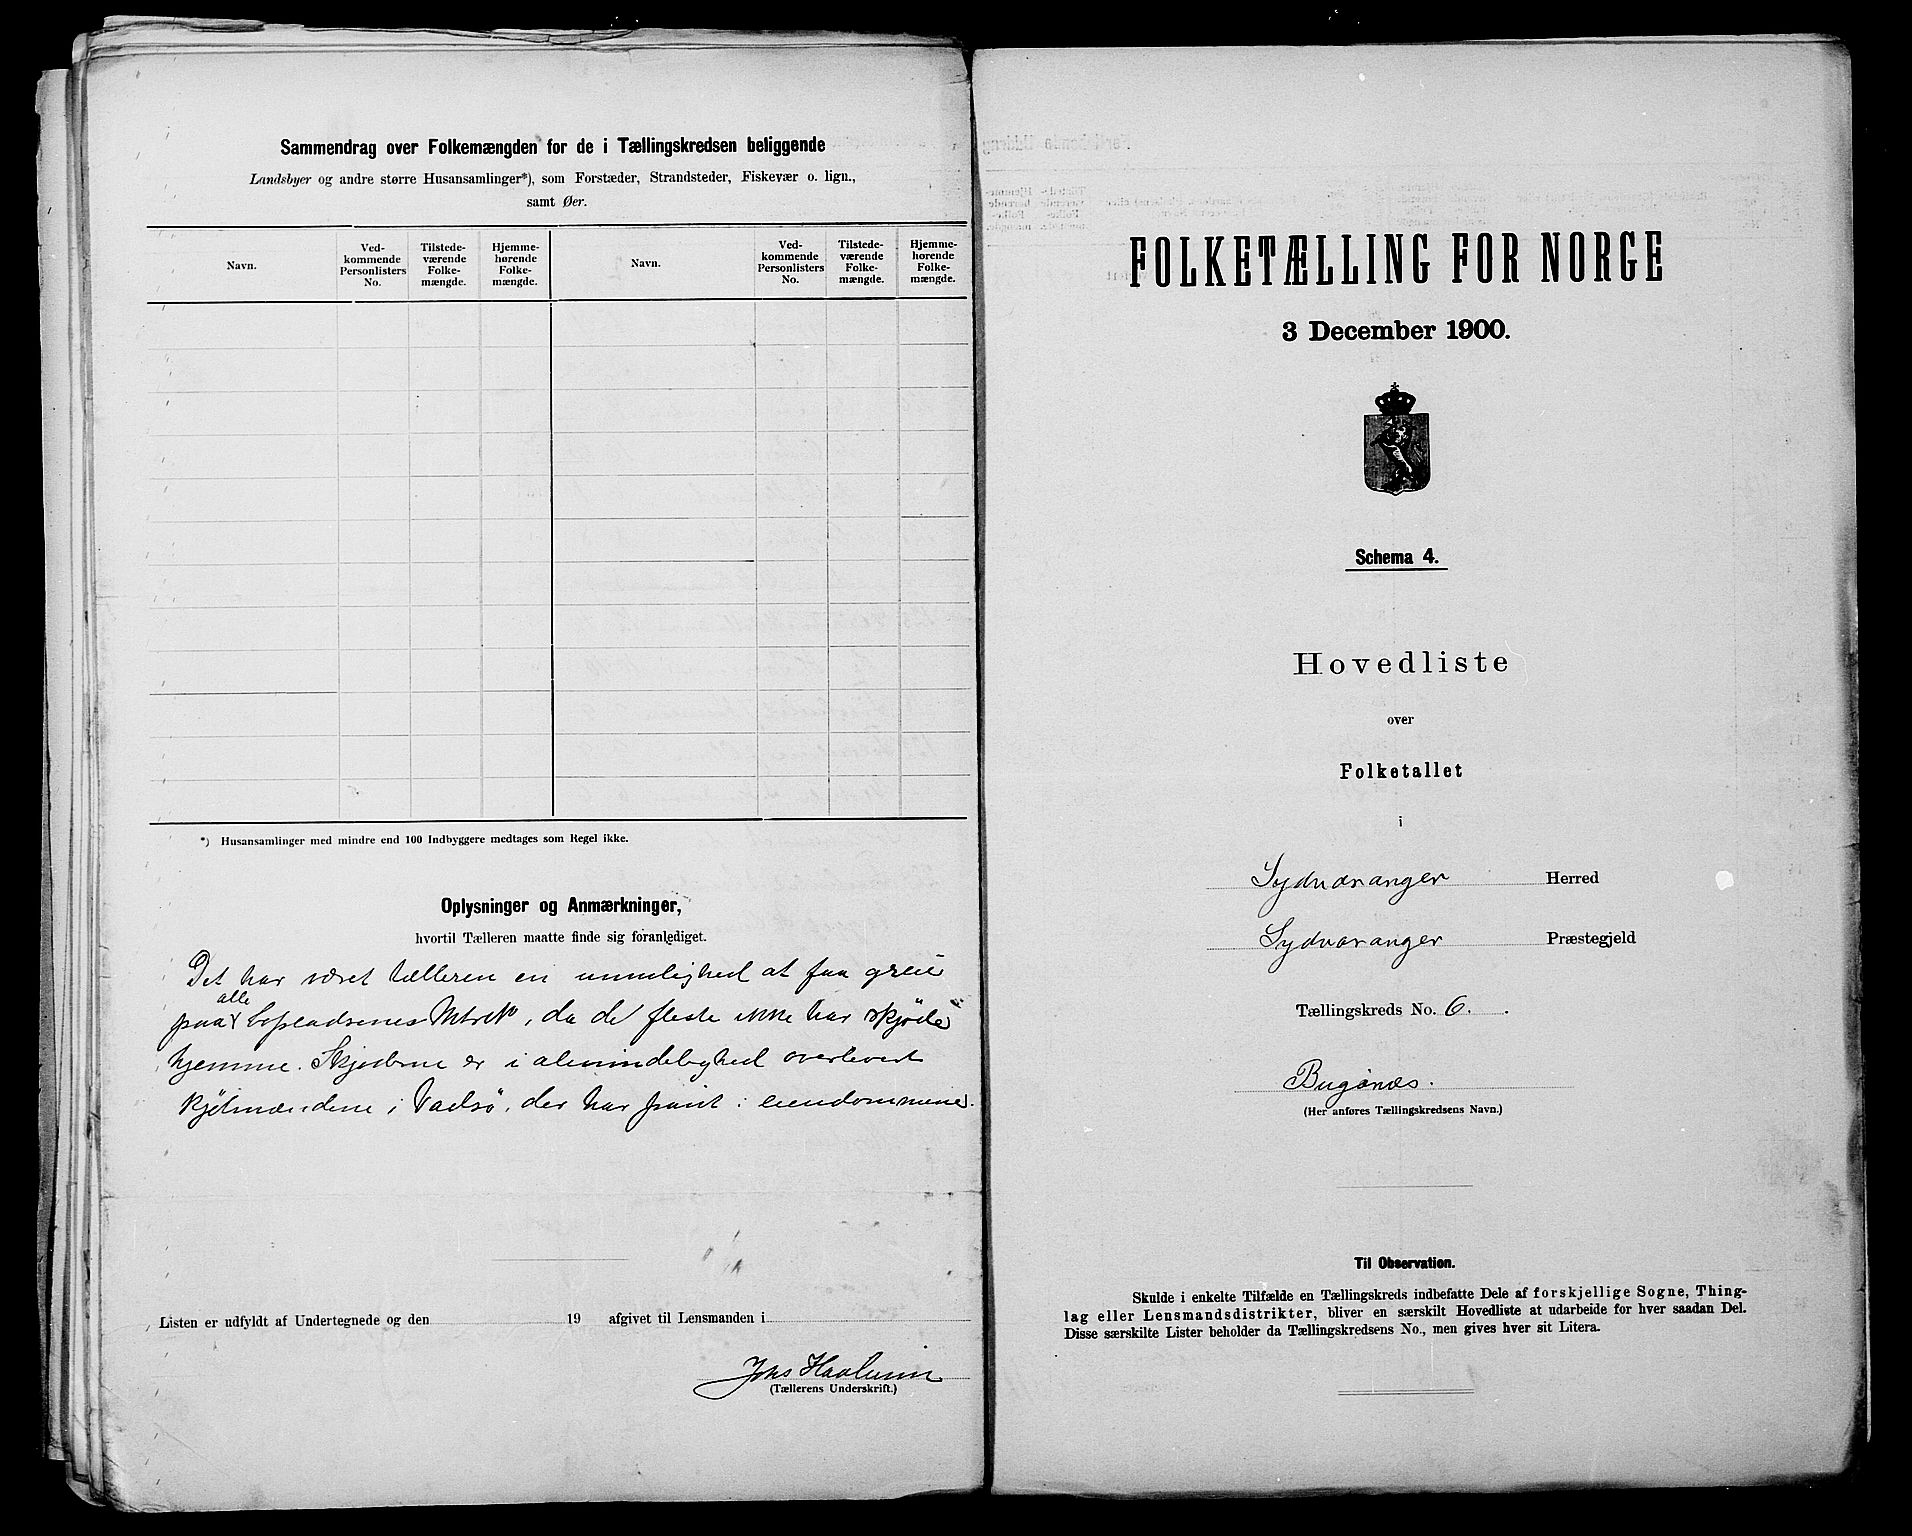 Sammendrag over Folkemængden for de i Tællingskredsen beliggende
Landsbyer og andre større Husansamlinger*), som Forstæder, Strandsteder, Fiskevær o. lign.,
samt Øer.
Navn.
Ved-
kommende
Personlisters
No.
Tilstede-
værende
Folke-
mængde.
Hjemme-
hørende
Folke-
mængde.
Navn.
Ved-
kommende
Personlisters
No.
Tilstede-
værende
Folke-
mængde.
Hjemme-
hørende
Folke-
mængde.
*) Husansamlinger med mindre end 100 Indbyggere medtages som Regel ikke.
Oplysninger og Anmærkninger,
hvortil Tælleren maatte finde sig foranlediget.
Det har været tælleren en umulighed at faa greie
alle
paa bopladsenes Mtr N°, da de fleste ikke har skjøde
hjemme. Skjøderne er i almindelighed overlevert
kjøbmændene i Vadsø, der har pant i eiendommene.
Listen er udfyldt af Undertegnede og den 19 afgivet til Lensmanden i
Johs Haaheim
(Tællerens Underskrift.)
FOLKETÆLLING FOR NORGE
3 December 1900.
Schema 4.
Hovedliste
over
Folketallet
i
Sydvaranger Herred
Sydvaranger Præstegjeld
Tællingskreds No. 6.
Bugönæs.
(Her anføres Tællingskredsens Navn.)
Til Observation.
Skulde i enkelte Tilfælde en Tællingskreds indbefatte Dele af forskjellige Sogne, Thing-
lag eller Lensmandsdistrikter, bliver en særskilt Hovedliste at udarbeide for hver saadan Del.
Disse særskilte Lister beholder da Tællingskredsens No., men gives hver sit Litera.